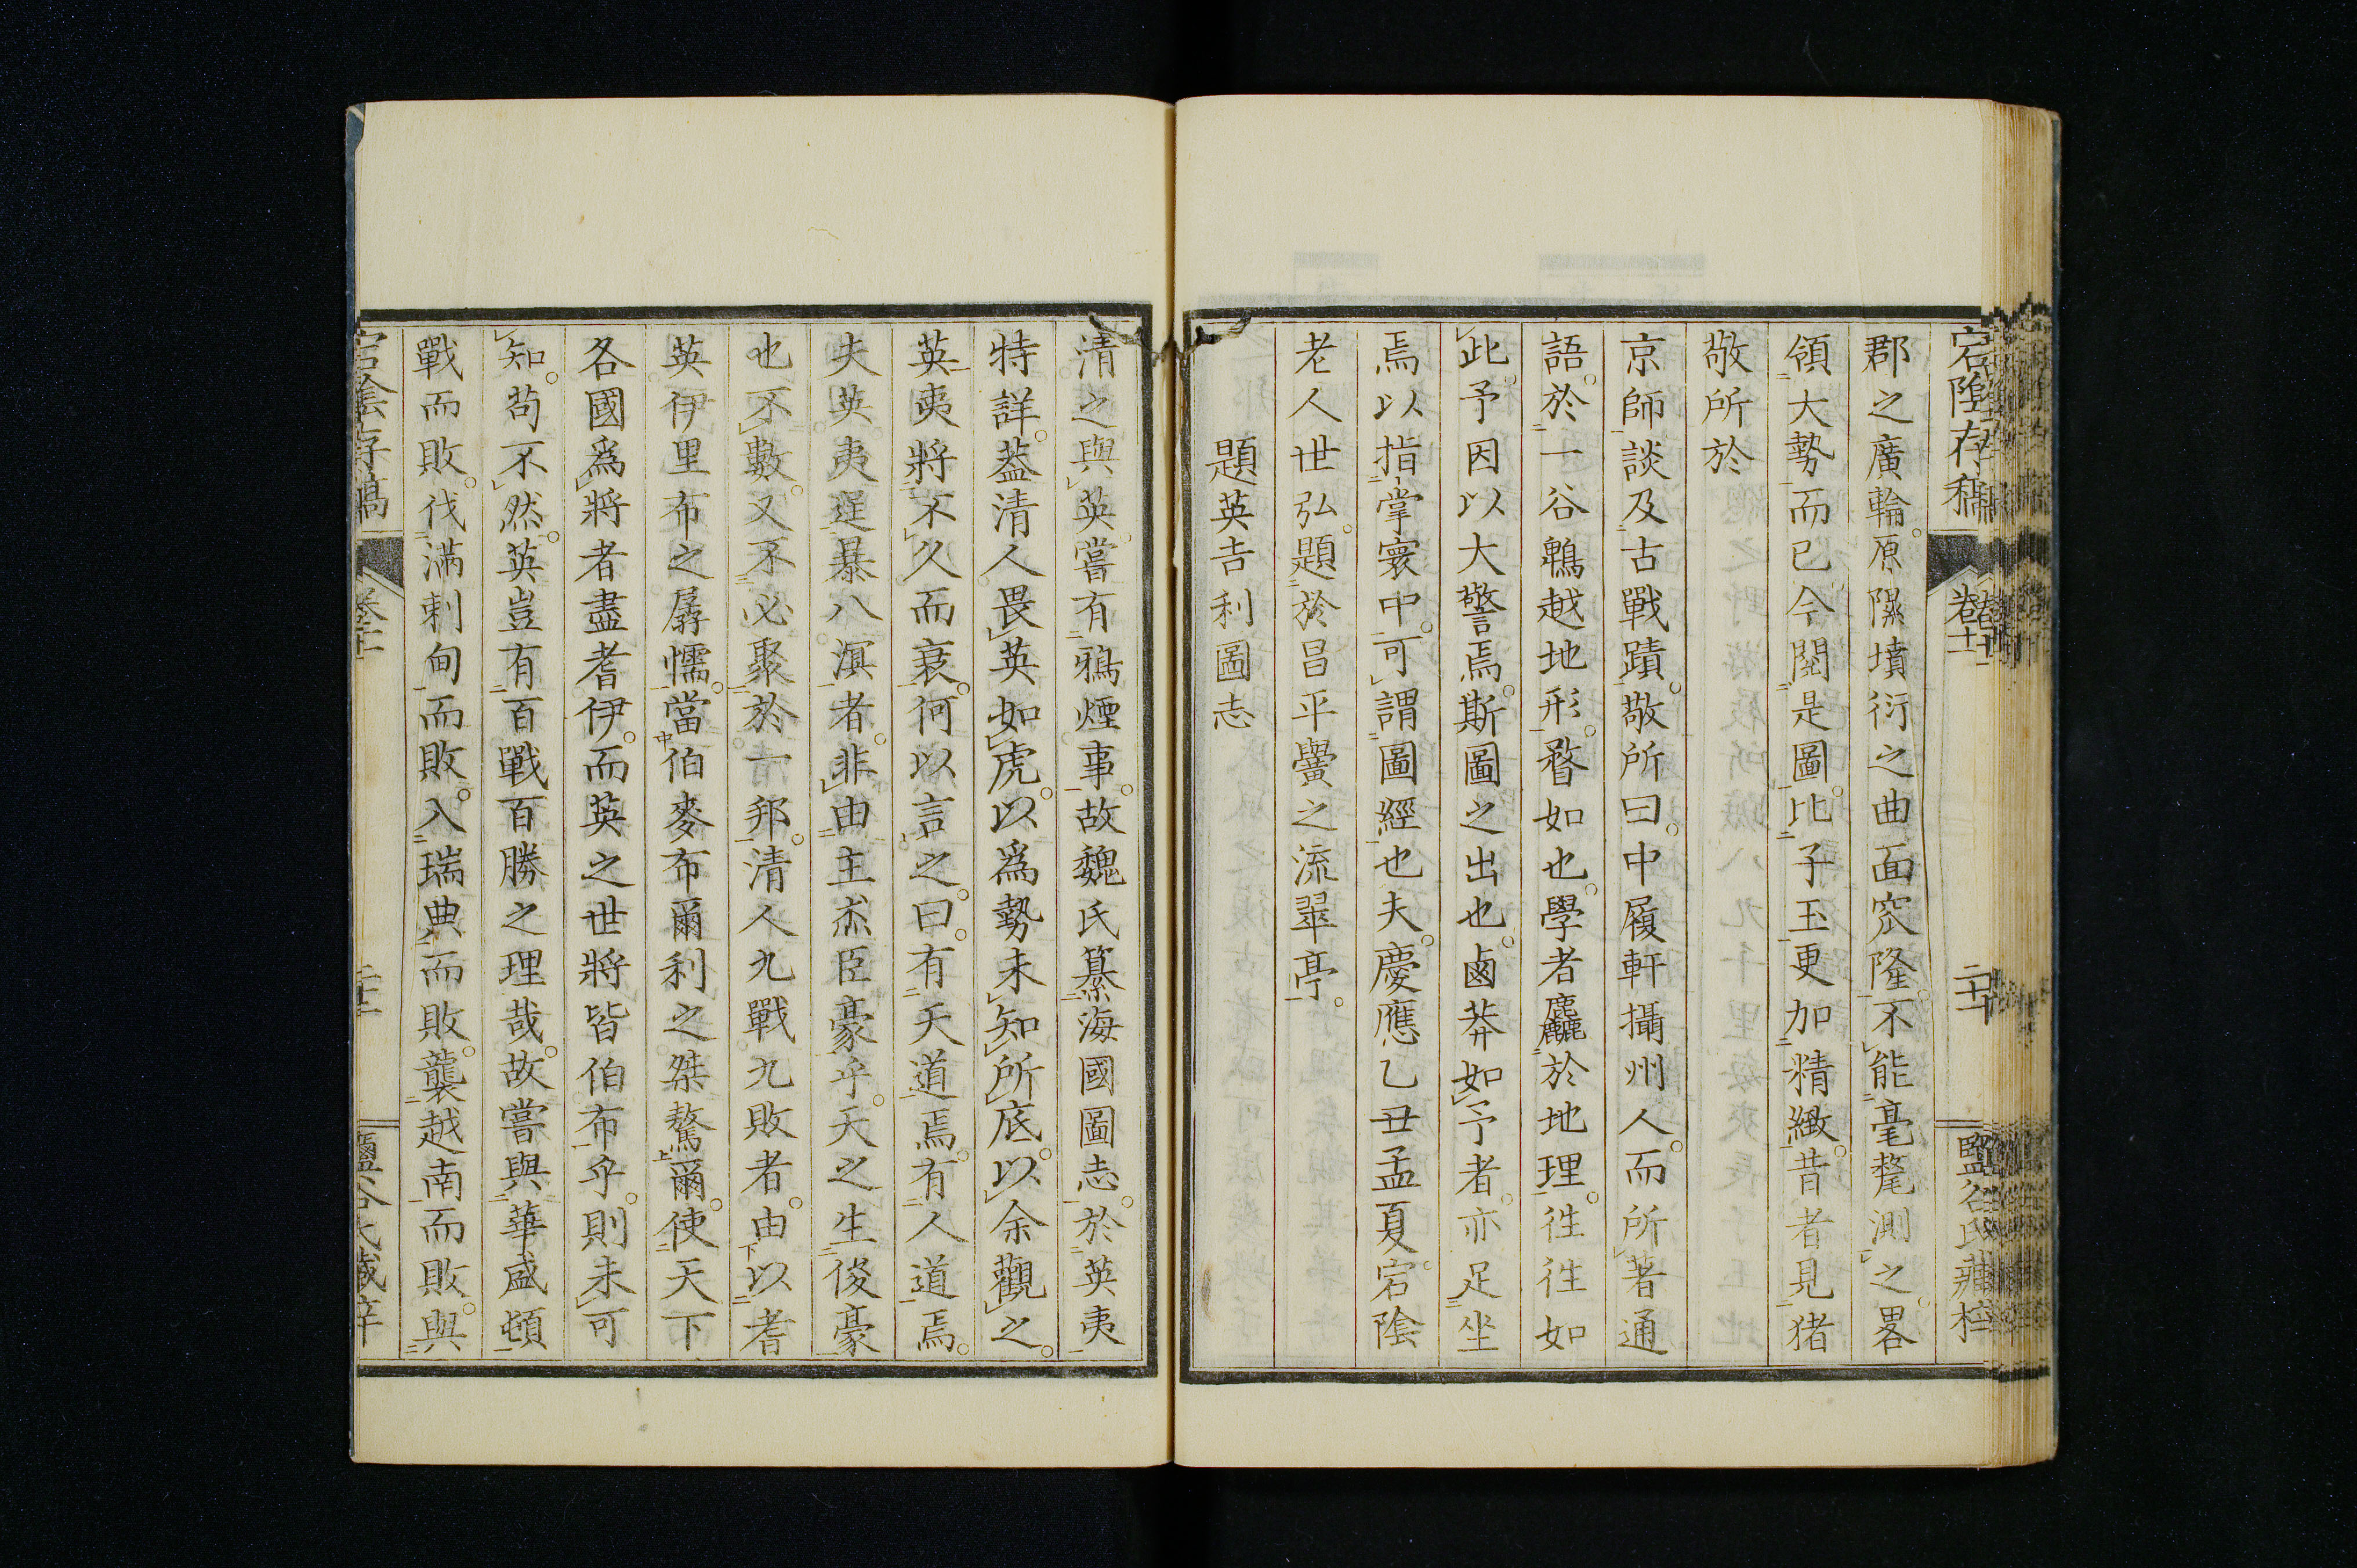 宕陰存稿 卷十二 二十 鹽谷氏藏梓
郡之廣輪。原隰墳衍之曲面窊隆。不能毫氂測之。畧
領大勢而已今閱是圖。比子玉更加精緻。昔者見猪
敬所於
京師談及古戰蹟。敬所曰。中履軒攝州人。而所著通
語。於一谷鵯越地形。瞀如也。學者麤於地理。徃徃如
此。予因以大警焉。斯圖之出也。鹵莽如予者。亦足坐
焉以指掌寰中。可謂圖經也夫。慶應乙丑孟夏。宕陰
老人世弘。題於昌平黌之流翠亭。
題英吉利圖志
清之與英。嘗有鴉煙事。故魏氏纂海國圖志。於英夷
特詳。葢清人畏英如虎。以爲勢未知所底。以余觀之。
英夷將不久而衰。何以言之。曰。有天道焉。有人道焉。
夫英夷逞暴八溟者。非由主杰臣豪乎。天之生俊豪
也不數。又不必聚於一邦。清人九戰九敗者。由以耆
英伊里布之孱懦。當伯麥布爾利之桀驁爾。使天下
各國爲將者盡耆伊。而英之世將皆伯布乎。則未可
知。苟不然。英豈有百戰百勝之理哉。故嘗與華盛頓
戰而敗。伐滿剌甸而敗。入瑞典而敗。襲越南而敗。與
宕陰存稿 卷十二 鹽谷氏藏梓